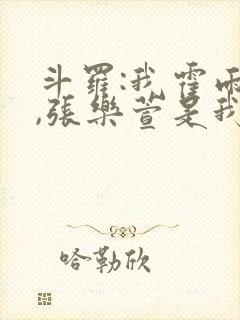 斗羅:我霍雨
,張樂萱是我
哈勒欣